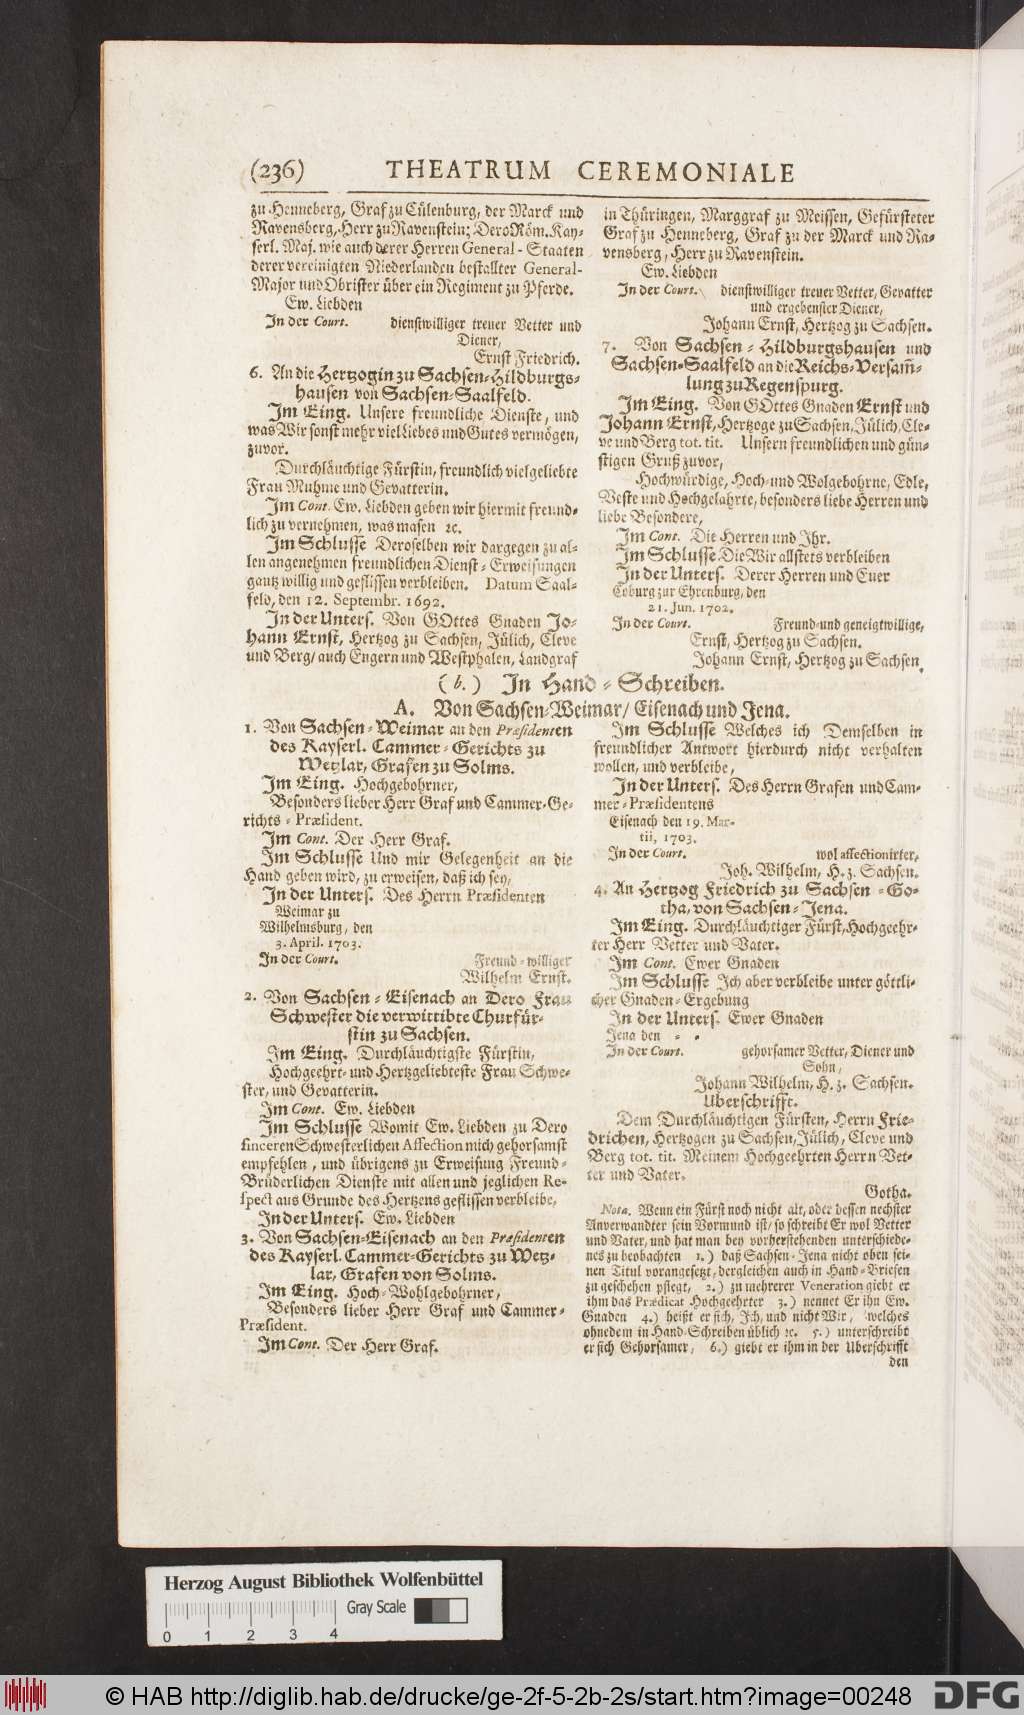 (236) THEATRUM CEREMONIALE
zu Henneberg, Graf zu Cülenburg, der Marck und
Ravensberg, Herr zu Ravenstein; Dero Röm. Kay-
serl. Maj. wie auch derer Herren General-Staaten
derer vereinigten Niederlanden bestallter General-
Major und Obrister über ein Regiment zu Pferde.
Ew. Liebden
In der Court. dienstwilliger treuer Vetter und
Diener,
Ernst Friedrich.
6. An die Hertzogin zu Sachsen-Hildburgs-
hausen von Sachsen-Saalfeld.
Im Eing. Unsere freundliche Dienste, und
was Wir sonst mehr viel Liebes und Gutes vermögen,
zuvor.
Durchläuchtige Fürstin, freundlich vielgeliebte
Frau Muhme und Gevatterin.
Im Cont. Ew. Liebden geben wir hiermit freund-
lich zu vernehmen, was masen ꝛc.
Im Schlusse Deroselben wir dargegen zu al-
len angenehmen freundlichen Dienst-Erweisungen
gantz willig und geflissen verbleiben. Datum Saal-
feld, den 12. Septembr. 1692.
In der Unters. Von GOttes Gnaden Jo-
hann Ernst, Hertzog zu Sachsen, Jülich, Cleve
und Berg/ auch Engern und Westphalen, Landgraf
in Thüringen, Marggraf zu Meissen, Gefürsteter
Graf zu Henneberg, Graf zu der Marck und Ra-
vensberg, Herr zu Ravenstein.
Ew. Liebden
In der Court. dienstwilliger treuer Vetter, Gevatter
und ergebenster Diener,
Johann Ernst, Hertzog zu Sachsen.
7. Von Sachsen-Hildburgshausen und
Sachsen-Saalfeld an die Reichs-Versam̃-
lung zu Regenspurg.
Im Eing. Von GOttes Gnaden Ernst und
Johann Ernst, Hertzoge zu Sachsen, Jülich, Cle-
ve und Berg tot. tit. Unsern freundlichen und gün-
stigen Gruß zuvor,
Hochwürdige, Hoch- und Wolgebohrne, Edle,
Veste und Hochgelahrte, besonders liebe Herren und
liebe Besondere,
Im Cont. Die Herren und Ihr.
Im Schlusse Die Wir allstets verbleiben
In der Unters. Derer Herren und Euer
Coburg zur Ehrenburg, den
21. Jun. 1702.
In der Court. Freund- und geneigtwillige,
Ernst, Hertzog zu Sachsen.
Johann Ernst, Hertzog zu Sachsen.
(b.) In Hand-Schreiben.
A. Von Sachsen-Weimar/ Eisenach und Jena.
1. Von Sachsen-Weimar an den Præsidenten
des Kayserl. Cammer-Gerichts zu
Wetzlar, Grafen zu Solms.
Im Eing. Hochgebohrner,
Besonders lieber Herr Graf und Cammer-Ge-
richts-Præsident.
Im Cont. Der Herr Graf.
Im Schlusse Und mir Gelegenheit an die
Hand geben wird, zu erweisen, daß ich sey,
In der Unters. Des Herrn Præsidenten
Weimar zu
Wilhelmsburg, den
3. April. 1703.
In der Court. Freund-williger
Wilhelm Ernst.
2. Von Sachsen-Eisenach an Dero Frau
Schwester die verwittibte Churfür-
stin zu Sachsen.
Im Eing. Durchläuchtigste Fürstin,
Hochgeehrt- und Hertzgeliebteste Frau Schwe-
ster, und Gevatterin.
Im Cont. Ew. Liebden
Im Schlusse Womit Ew. Liebden zu Dero
sinceren Schwesterlichen Affection mich gehorsamst
empfehlen, und übrigens zu Erweisung Freund-
Brüderlichen Dienste mit allen und jeglichen Re-
spect aus Grunde des Hertzens geflissen verbleibe,
In der Unters. Ew. Liebden
3. Von Sachsen-Eisenach an den Præsidenten
des Kayserl. Cammer-Gerichts zu Wetz-
lar, Grafen von Solms.
Im Eing. Hoch-Wohlgebohrner,
Besonders lieber Herr Graf und Cammer-
Præsident.
Im Cont. Der Herr Graf.
Im Schlusse Welches ich Demselben in
freundlicher Antwort hierdurch nicht verhalten
wollen, und verbleibe,
In der Unters. Des Herrn Grafen und Cam-
mer-Præsidentens
Eisenach den 19. Mar-
tii, 1703.
In der Court. wol affectionirter,
Joh. Wilhelm, H. z. Sachsen.
4. An Hertzog Friedrich zu Sachsen-Go-
tha, von Sachsen-Jena.
Im Eing. Durchläuchtiger Fürst, Hochgeehr-
ter Herr Vetter und Vater.
Im Cont. Ewer Gnaden
Im Schlusse Ich aber verbleibe unter göttli-
cher Gnaden-Ergebung
In der Unters. Ewer Gnaden
Jena den - -
In der Court. gehorsamer Vetter, Diener und
Sohn,
Johann Wilhelm, H. z. Sachsen.
Uberschrifft.
Dem Durchläuchtigen Fürsten, Herrn Frie-
drichen, Hertzogen zu Sachsen, Jülich, Cleve und
Berg tot. tit. Meinem Hochgeehrten Herrn Vet-
ter und Vater.
Gotha.
Nota. Wenn ein Fürst noch nicht alt, oder dessen nechster
Anverwandter sein Vormund ist/ so schreibt Er wol Vetter
und Vater, und hat man bey vorherstehenden unterschiede-
nes zu beobachten 1.) daß Sachsen-Jena nicht oben sei-
nen Titul vorangesetzt, dergleichen auch in Hand-Briefen
zu geschehen pflegt, 2.) zu mehrerer Veneration giebt er
ihm das Prædicat Hochgeehrter 3.) nennet Er ihn Ew.
Gnaden 4.) heißt er sich, Ich, und nicht Wir, welches
ohnedem in Hand-Schreiben üblich ꝛc. 5.) unterschreibt
er sich Gehorsamer, 6.) giebt er ihm in der Uberschrifft
den
Herzog August Bibliothek Wolfenbüttel
Gray Scale
0 1 2 3 4
© HAB http://diglib.hab.de/drucke/ge-2f-5-2b-2s/start.htm?image=00248
DFG